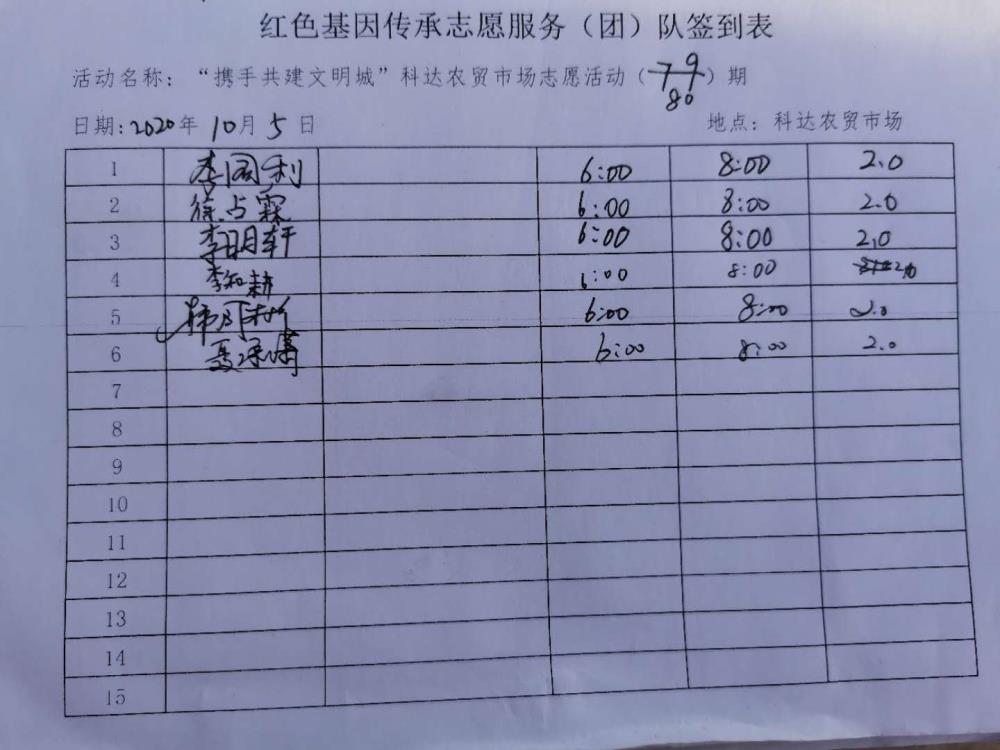 红色基因传承志愿服务（团）队签到表
活动名称：“携手共建文明城”科达农贸市场志愿活动（79）期
80
日期:2020年 10月 5日 地点：科达农贸市场
1 李国利 6:00 8:00 2.0
2 徐占霖 6:00 8:00 2.0
3 李明轩 6:00 8:00 2.0
4 李知耕 6:00 8:00 2.0
5 6:00 8:00 2.0
6 6:00 8:00 2.0
7
8
9
10
11
12
13
14
15